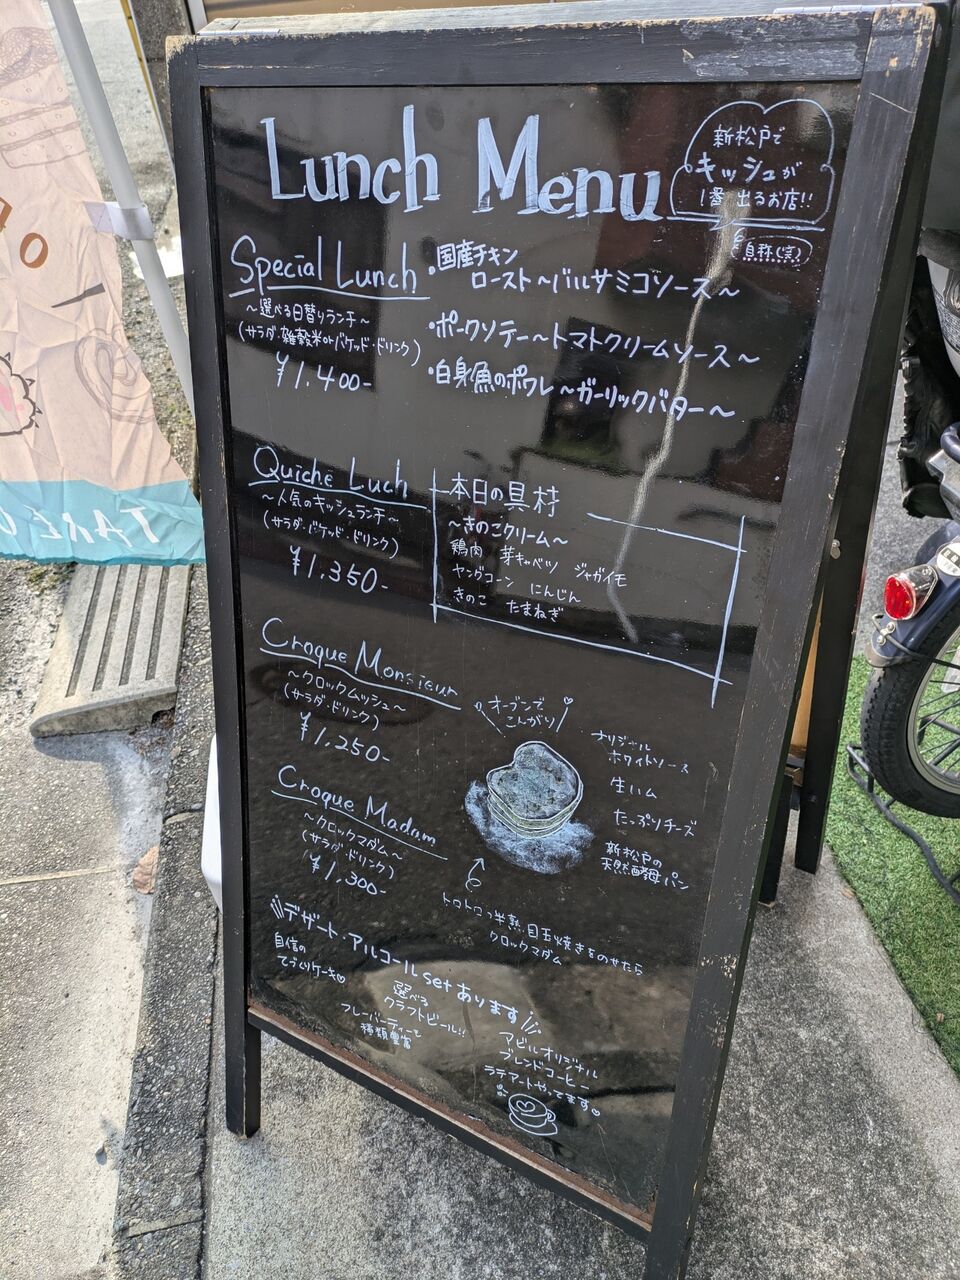 Lunch Menu
新松戸で
キッシュが
1番 出るお店!!
自称(笑)
Special Lunch
～選べる日替りランチ～
(サラダ・雑穀米orバケッド・ドリンク)
¥1,400-
・国産チキン
ロースト～バルサミコソース～
・ポークソテー～トマトクリームソース～
・白身魚のポワレ～ガーリックバター～
Quiche Luch
～人気のキッシュランチ～
(サラダ・バケッド・ドリンク)
¥1,350-
本日の具材
～きのこクリーム～
鶏肉 芽キャベツ ジャガイモ
ヤングコーン にんじん
きのこ たまねぎ
Croque Monsieur
～クロックムッシュ～
(サラダ・ドリンク)
¥1,250-
オーブンで
こんがり
オリジナル
ホワイトソース
生ハム
たっぷりチーズ
新松戸の
天然酵母パン
Croque Madam
～クロックマダム～
(サラダ・ドリンク)
¥1,300-
トロトロっ半熟目玉焼きをのせたら
クロックマダム
デザート・アルコールsetあります
自信の
てづくりケーキ♡
選べる
クラフトビール!!
フレーバーティーも
種類豊富
アビルオリジナル
ブレンドコーヒー
ラテアートやってます♡